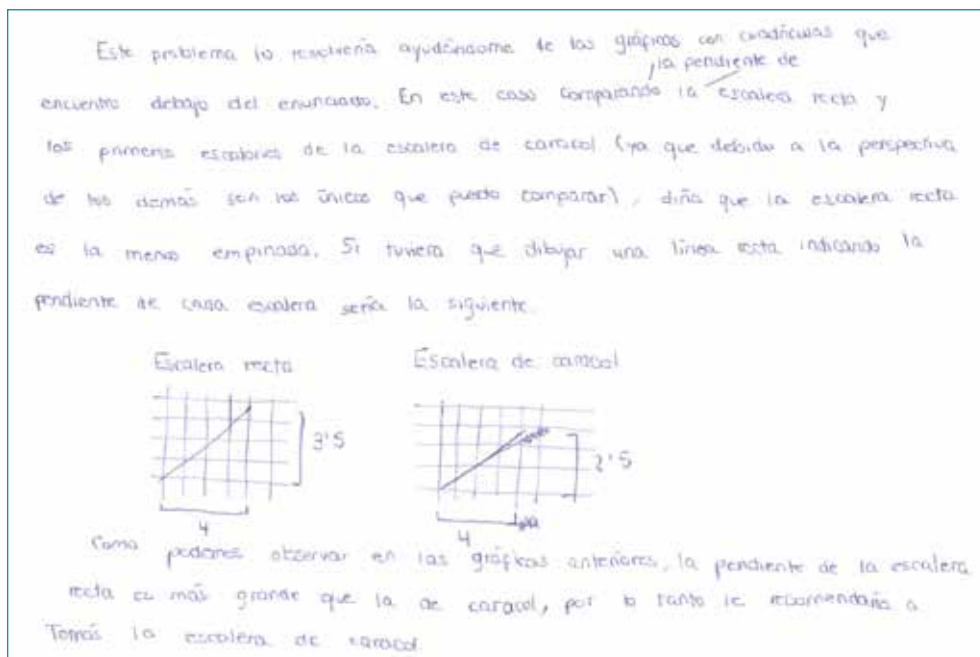 Este problema lo resolvería ayudándome de los gráficos con cuadrículas que
la pendiente de
encuentro debajo del enunciado. En este caso comparando la escalera recta y
los primeros escalones de la escalera de caracol (ya que debido a la perspectiva
de los demás son los únicos que puedo comparar), diría que la escalera recta
es la menos empinada. Si tuviera que dibujar una línea recta indicando la
pendiente de cada escalera sería la siguiente.
Escalera recta
Escalera de caracol
3'5
2'5
4
4
Como podemos observar en las gráficas anteriores, la pendiente de la escalera
recta es más grande que la de caracol, por lo tanto le recomendaría a
Tomás la escalera de caracol.